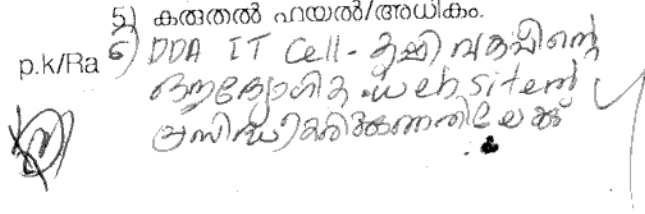 5) കരുതൽ ഫയൽ/അധികം.
p.k/Ra 6) DDA IT Cell - കൃഷി വകുപ്പിന്റെ
ഔദ്യോഗിക website ൽ
പ്രസിദ്ധീകരിക്കുന്നതിലേക്ക്